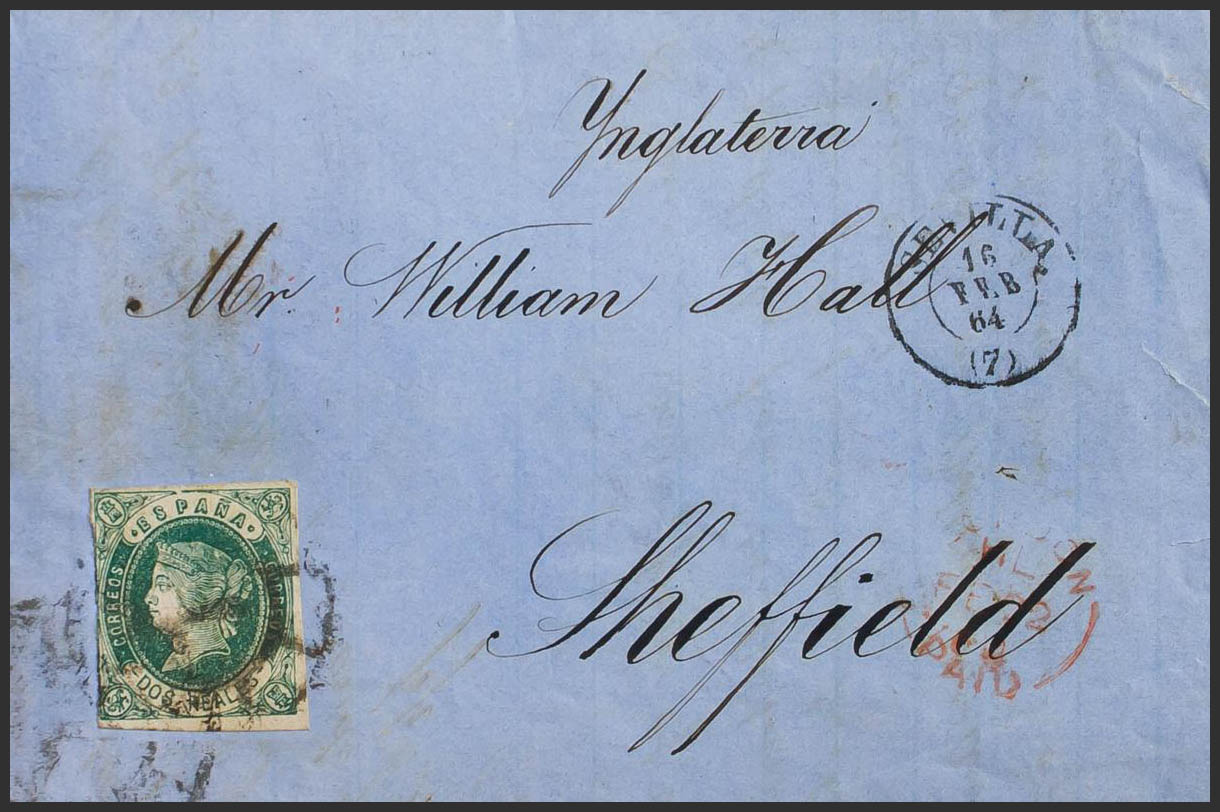 Ynglaterra
Mr. William Hall
SEVILLA.
16
FEB
64
(7)
Sheffield
ESPAÑA
CORREOS
CORREOS
DOS REALES
PAID